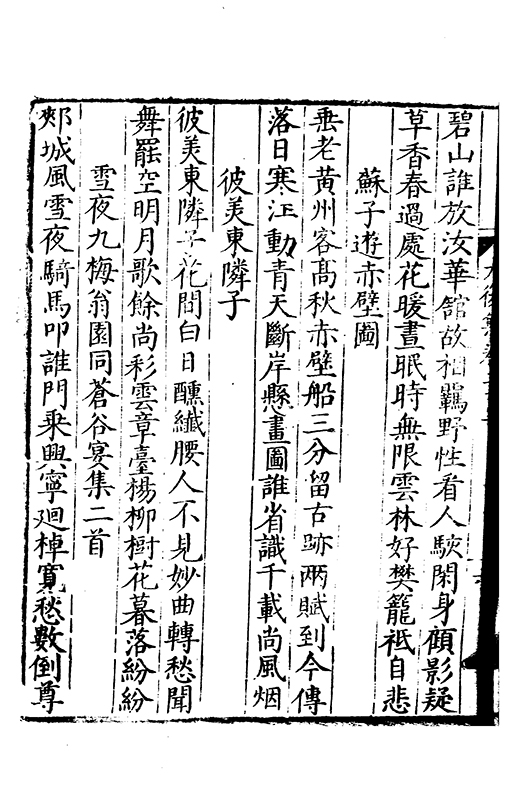 碧山誰放汝華舘故相羈野性看人駛閑身顧影疑
草香春過處花暖晝眠時無限雲林好樊籠祗自悲
蘇子遊赤壁圖
垂老黄州客高秋赤壁船三分留古跡兩賦到今傳
落日寒江動青天斷岸懸畫圖誰省識千載尚風烟
彼美東隣子
彼美東隣子花間白日醺纖腰人不見妙曲轉愁聞
舞罷空明月歌餘尚彩雲章臺楊柳樹花暮落紛紛
雪夜九梅翁園同蒼谷宴集二首
郟城風雪夜騎馬叩誰門乘興寧廻棹寬愁數倒尊